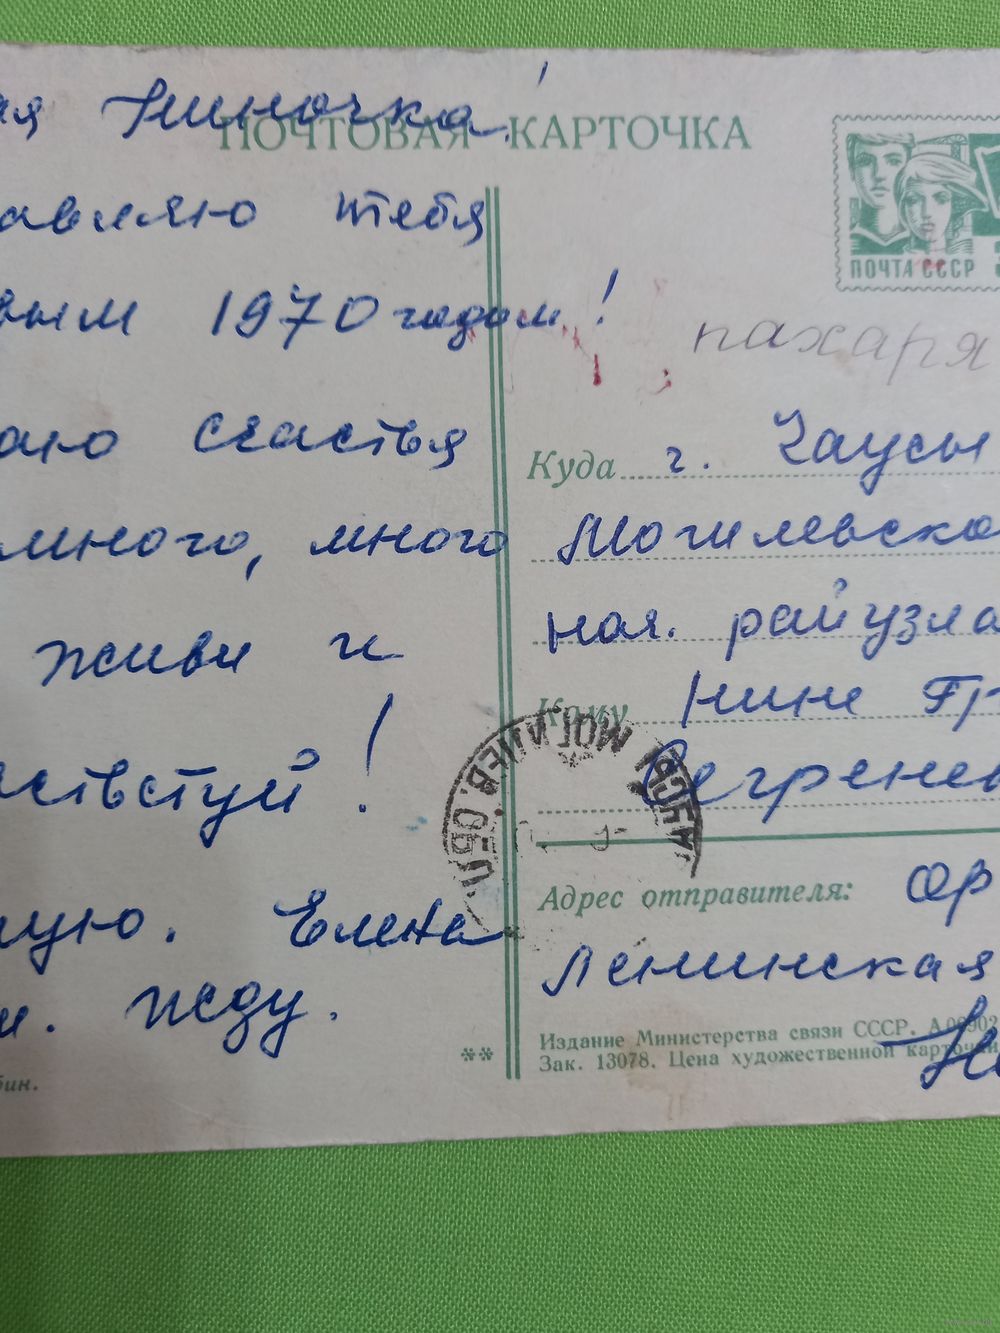 ая Ниночка!
ПОЧТОВАЯ КАРТОЧКА
авляю тебя
вым 1970 годом!
аю счастья
много, много
живи и
ствуй!
лую. Елена
и. Жду.
бин.
**
ПОЧТА СССР
пахаря
Куда г. Чаусы
Могилевско
ная. райузла
Кому Нине Гр
Сегренев
ЧАУСЫ МОГИЛЕВ. ОБЛ.
Адрес отправителя: ор
Ленинская
Издание Министерства связи СССР. А 00902
Зак. 13078. Цена художественной карточки